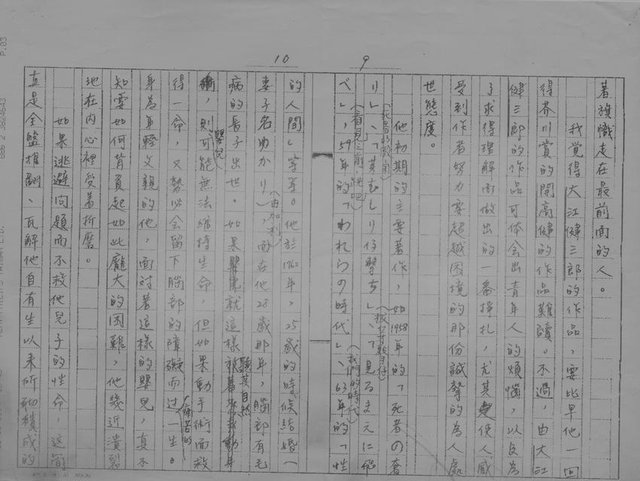 9
著旗幟走在最前面的人。
我覺得大江健三郎的作品,要比早他一回
得芥川賞的開高健的作品難讀。不過,由大江
健三郎的作品可体会出青年人的煩惱,以及為
了求得理解而做出的一番掙扎,尤其使人感
受到作者努力要超越困境的那份誠摯的為人處
世態度。
他初期的主要著作,如1958年的「死者の奢
り」、「芽むしり仔撃ち」、「見るまえに
べ」,59年的「われらの時代」,63年的「性
(我們的時代)
10
的人間」等等。他於1960年,25歲的時候結婚(
妻子名ゆかり),而在他28歲那年,腦部有毛
病的長子出世。如果嬰兒就這樣
順其自然
則可能無法維持生命,但如果動手術而救
得一命,又勢必会留下腦部的障礙而過一生。
身為年輕父親的他,面對著這樣的嬰兒,真不
知要如何背負起如此龐大的困難,他幾近潰裂
地在內心裡受著折磨。
如果逃避問題而不救他兒子的性命,這簡
直是全盤推翻、瓦解他自有生以來所積成的